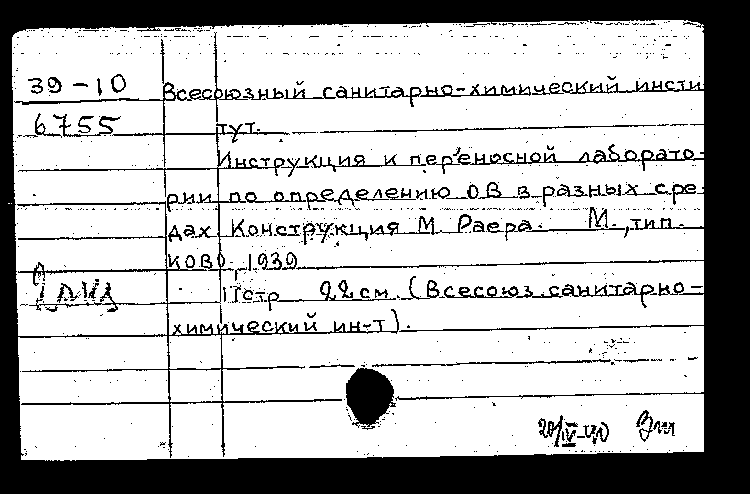 39-10
6755
Всесоюзный санитарно-химический инсти
тут.
Инструкция к переносной лаборато-
рии по определению ОВ в разных сре-
дах. Конструкция М. Раера. М., тип.
КОВО, 1939
стр 22 см. (Всесоюз. санитарно-
химический ин-т).
2 экз
20/IV-40